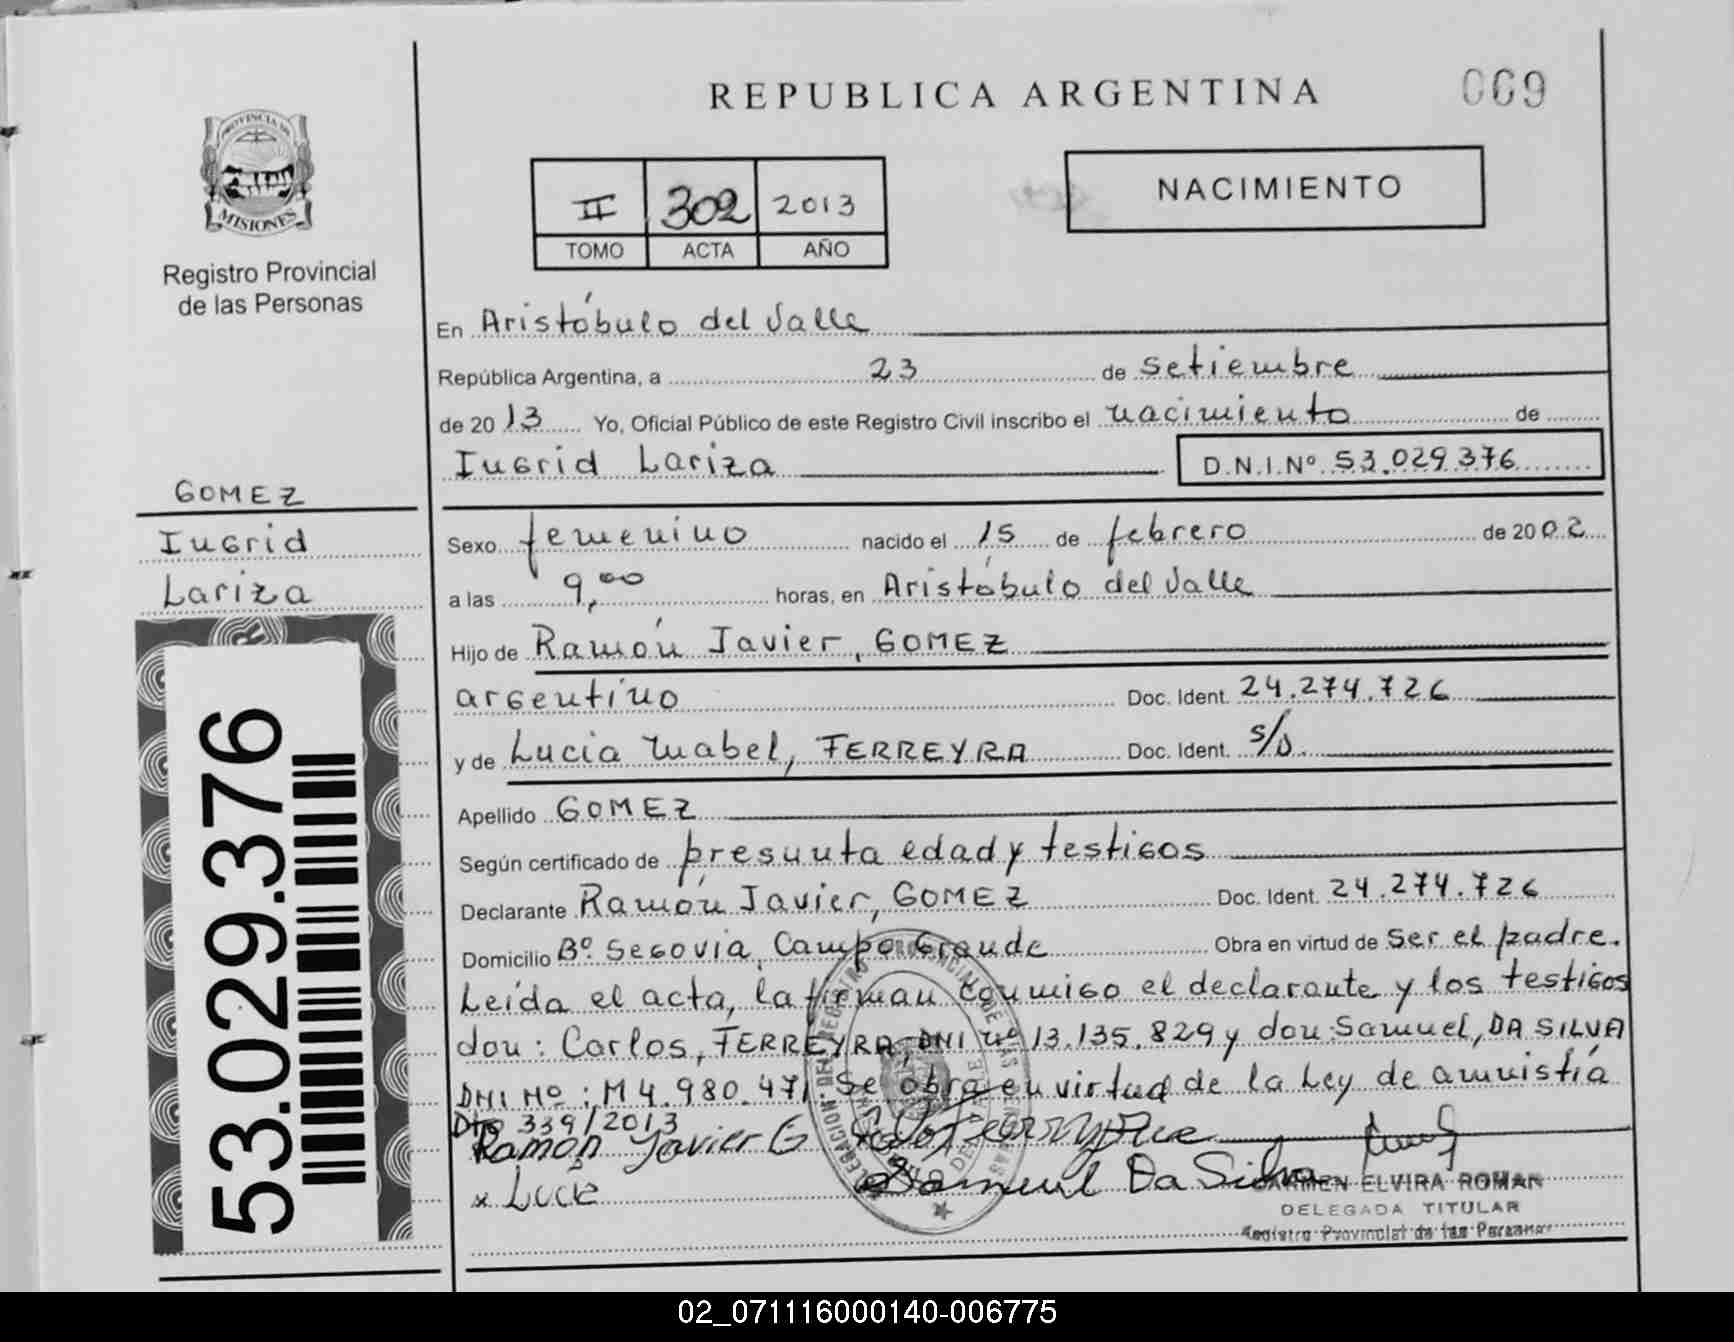 REPUBLICA ARGENTINA
009
PROVINCIA DE
MISIONES
Registro Provincial
de las Personas
II 302 2013
TOMO ACTA AÑO
NACIMIENTO
En Aristóbulo del Valle
República Argentina, a 23 de setiembre
de 2013 Yo, Oficial Público de este Registro Civil inscribo el nacimiento de
Ingrid Lariza D.N.I.Nº 53.029.376
GOMEZ
Ingrid
Lariza
53.029.376
Sexo femenino nacido el 15 de febrero de 2002
a las 9,00 horas, en Aristóbulo del Valle
Hijo de Ramón Javier, GOMEZ
argentino Doc. Ident. 24.274.726
y de Lucia Mabel, FERREYRA Doc. Ident. s/D.
Apellido GOMEZ
Según certificado de presunta edad y testigos
Declarante Ramón Javier, GOMEZ Doc. Ident. 24.274.726
Domicilio Bº. Segovia, Campo Grande Obra en virtud de Ser el padre.
Leída el acta, la firman conmigo el declarante y los testigos
don: Carlos, FERREYRA, DNI nº 13.135.829 y don: Samuel, DA SILVA
DNI Nº: M 4.980.471 Se obra en virtud de la Ley de amnistía
Dto 339/2013
Ramón Javier G
x Lucia
Samuel Da Silva
CARMEN ELVIRA ROMAN
DELEGADA TITULAR
Registro Provincial de las Personas
02_071116000140-006775